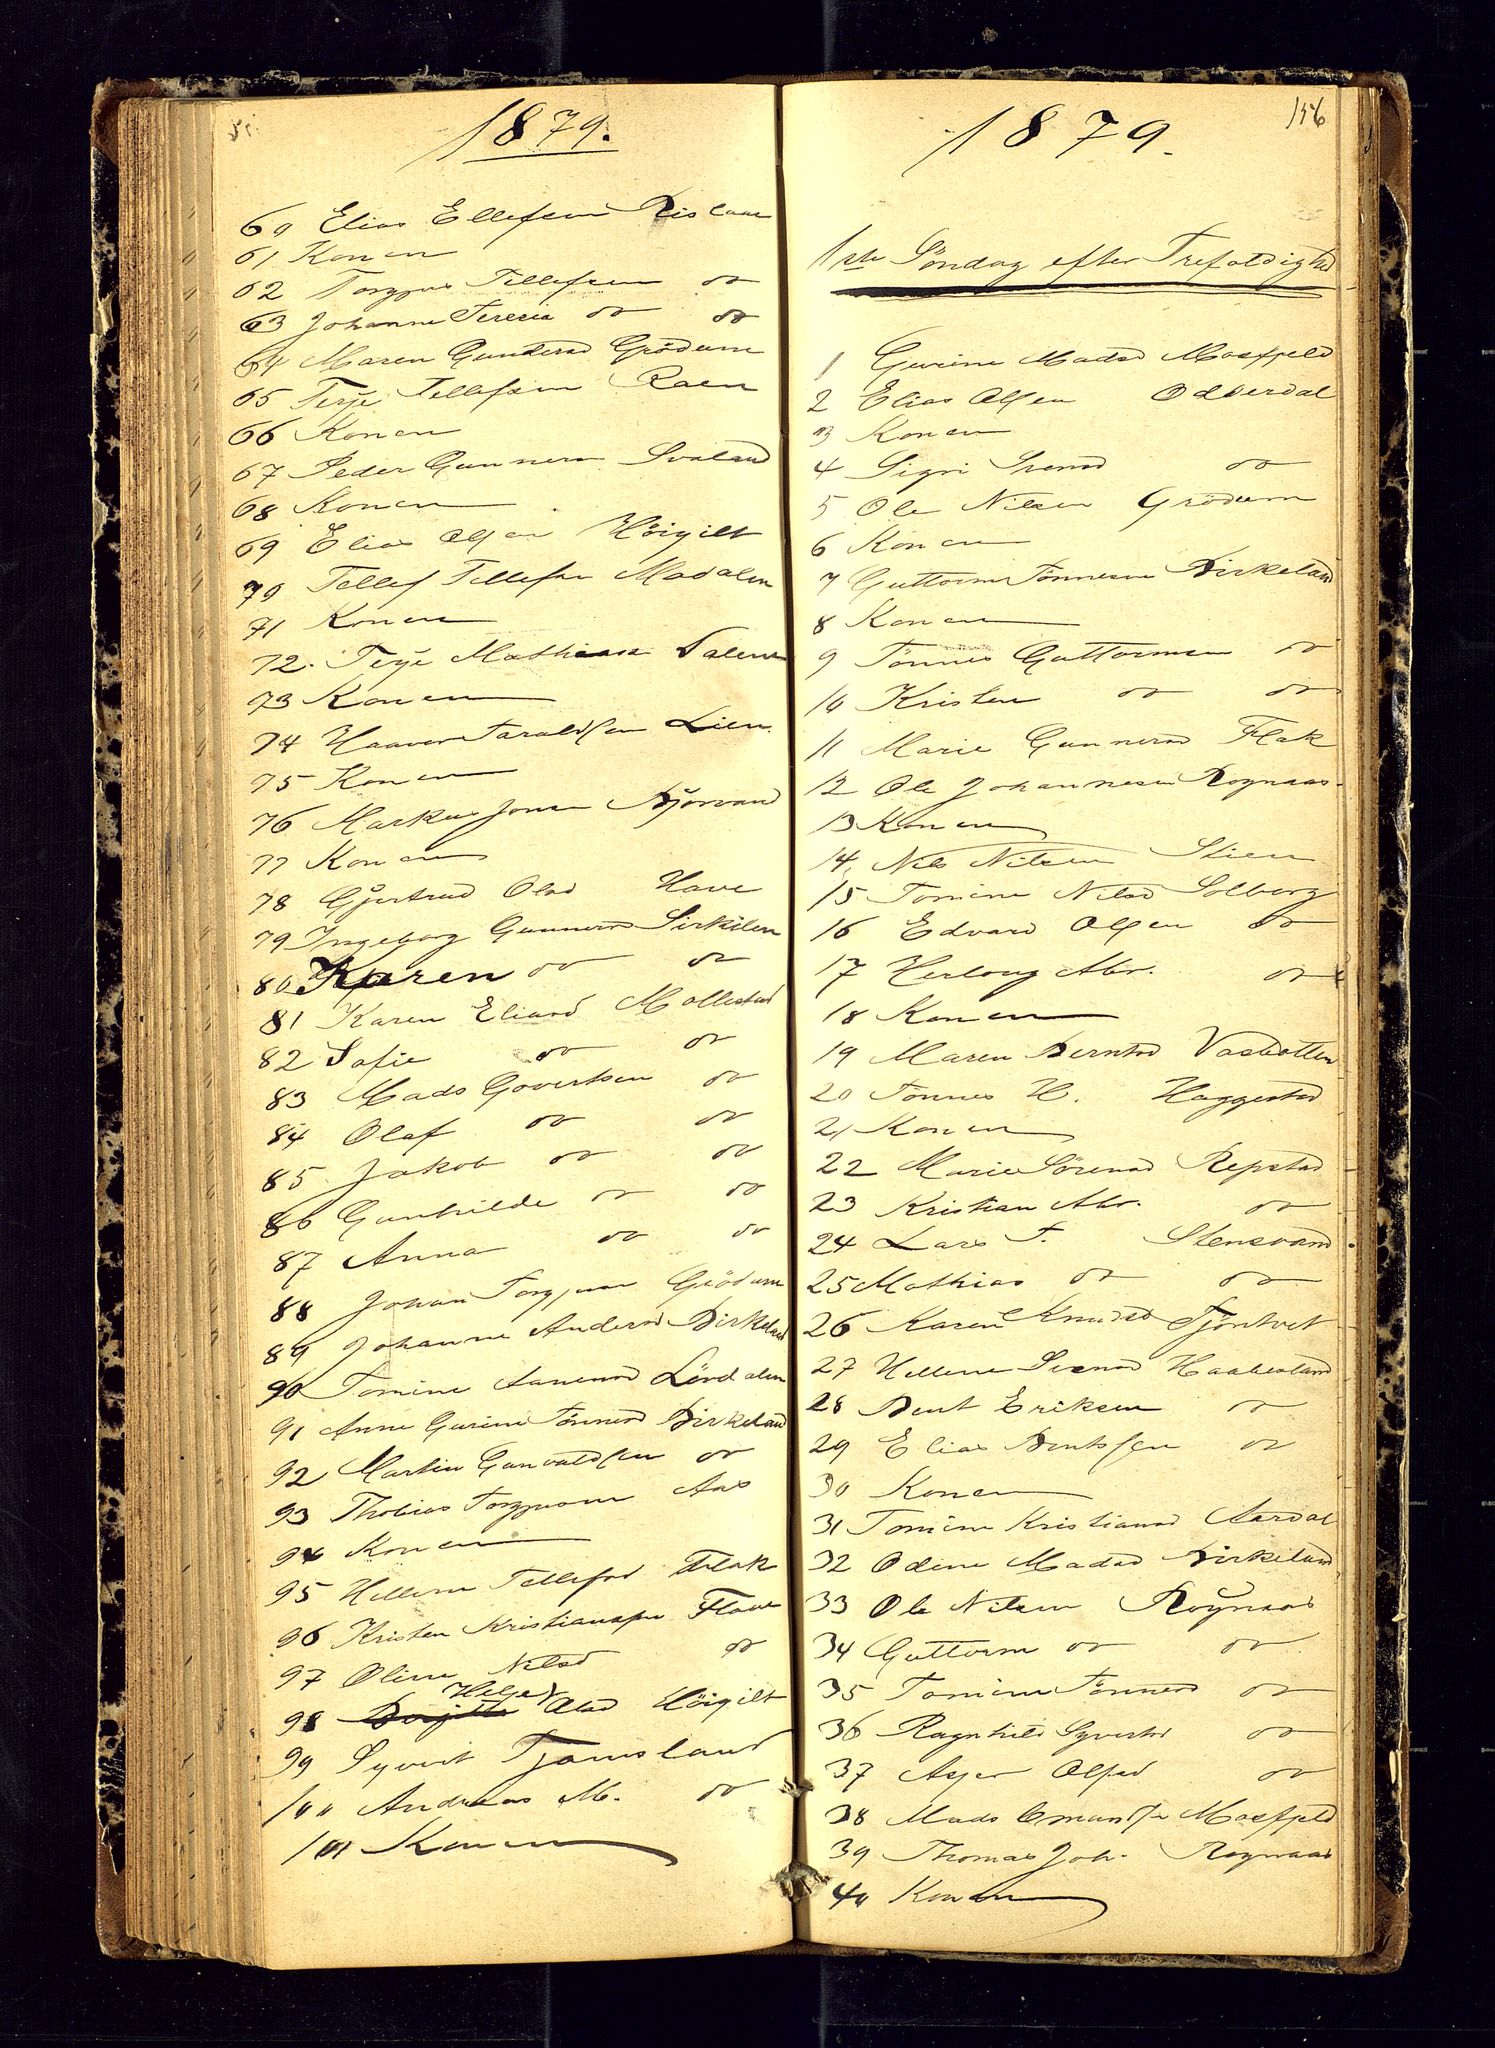 1879.
60 Elias Ellefsen Rislaae
61 Konen
62 Torgjus Tellefsen do
63 Johanne Teresia do do
64 Maren Gundersd Grödum
65 Terje Tellefsen Raen
66 Konen
67 Peder Gunners Svaland
68 Konen
69 Elias Olsen Höigilt
70 Tellef Tellefsen Madalen
71 Konen
72. Terje Mathias Dalen
73 Konen
74 Haaver Taraldsen Lien
75 Konen
76 Markus Jonsen Bjorvand
77 Konen
78 Gjertrud Olsd Have
79 Ingeborg Gunnersd Birkelen
80 Karen do do
81 Karen Eliasd Mollestad
82 Sofie do do
83 Mads Govertsen do
84 Olaf do do
85. Jakob do do
86 Gunhilde do do
87 Anna do do
88 Johan Torgjusen Grödum
89 Johanne Andersd Birkeland
90 Tomine Aanensd Lövdalen
91 Anne Gurine Tönnesd Birkeland
92 Martin Gunvaldsen do
93 Thobias Torgjusen Aas
94 Konen
95 Hellene Tellefsd Flak
96 Kristen Kristiansen Flaae
97 Oline Nilsd do
98 Helje Olsd Höigilt
99 Syvert Tjomsland
100 Andreas M. do
101 Konen
156
1879.
1ste Söndag efter Trefoldighed
1 Gurine Madsd Mosfjeld
2 Elias Olsen Odderdal
3 Konen
4 Sigri Svensd do
5 Ole Nilsen Grödum
6 Konen
7 Guttorm Tönnesen Birkeland
8 Konen
9 Tönnes Guttormsen do
10 Kristen do do
11 Marie Gunnersd Flak
12 Ole Johannesen Rognaas
13 Konen
14. Nils Nilsen Stien
15 Tomine Nilsd Solberg
16 Edvard Olsen do
17 Herlong Abr. do
18 Konen
19 Maren Berntsd Vasbotten
20 Tönnes H. Haggestad
21 Konen
22 Marie Sörensd Repstad
23 Kristian Abr. do
24 Lars T. Stensvand
25 Mathias do do
26 Karen Knudsd Tjöntvet
27 Hellene Svensd Haabesland
28 Bent Eriksen do
29 Elias Bentsen do
30 Konen
31 Tomine Kristiansd Aardal
32 Odine Madsd Birkeland
33 Ole Nilsen Rognaas
34 Guttorm do do
35 Tomine Tönnesd do
36 Ragnhild Syvertsd do
37 Asjer Olsd do
38 Mads Omundsen Mosfjeld
39 Thomas Joh. Rognaas
40 Konen